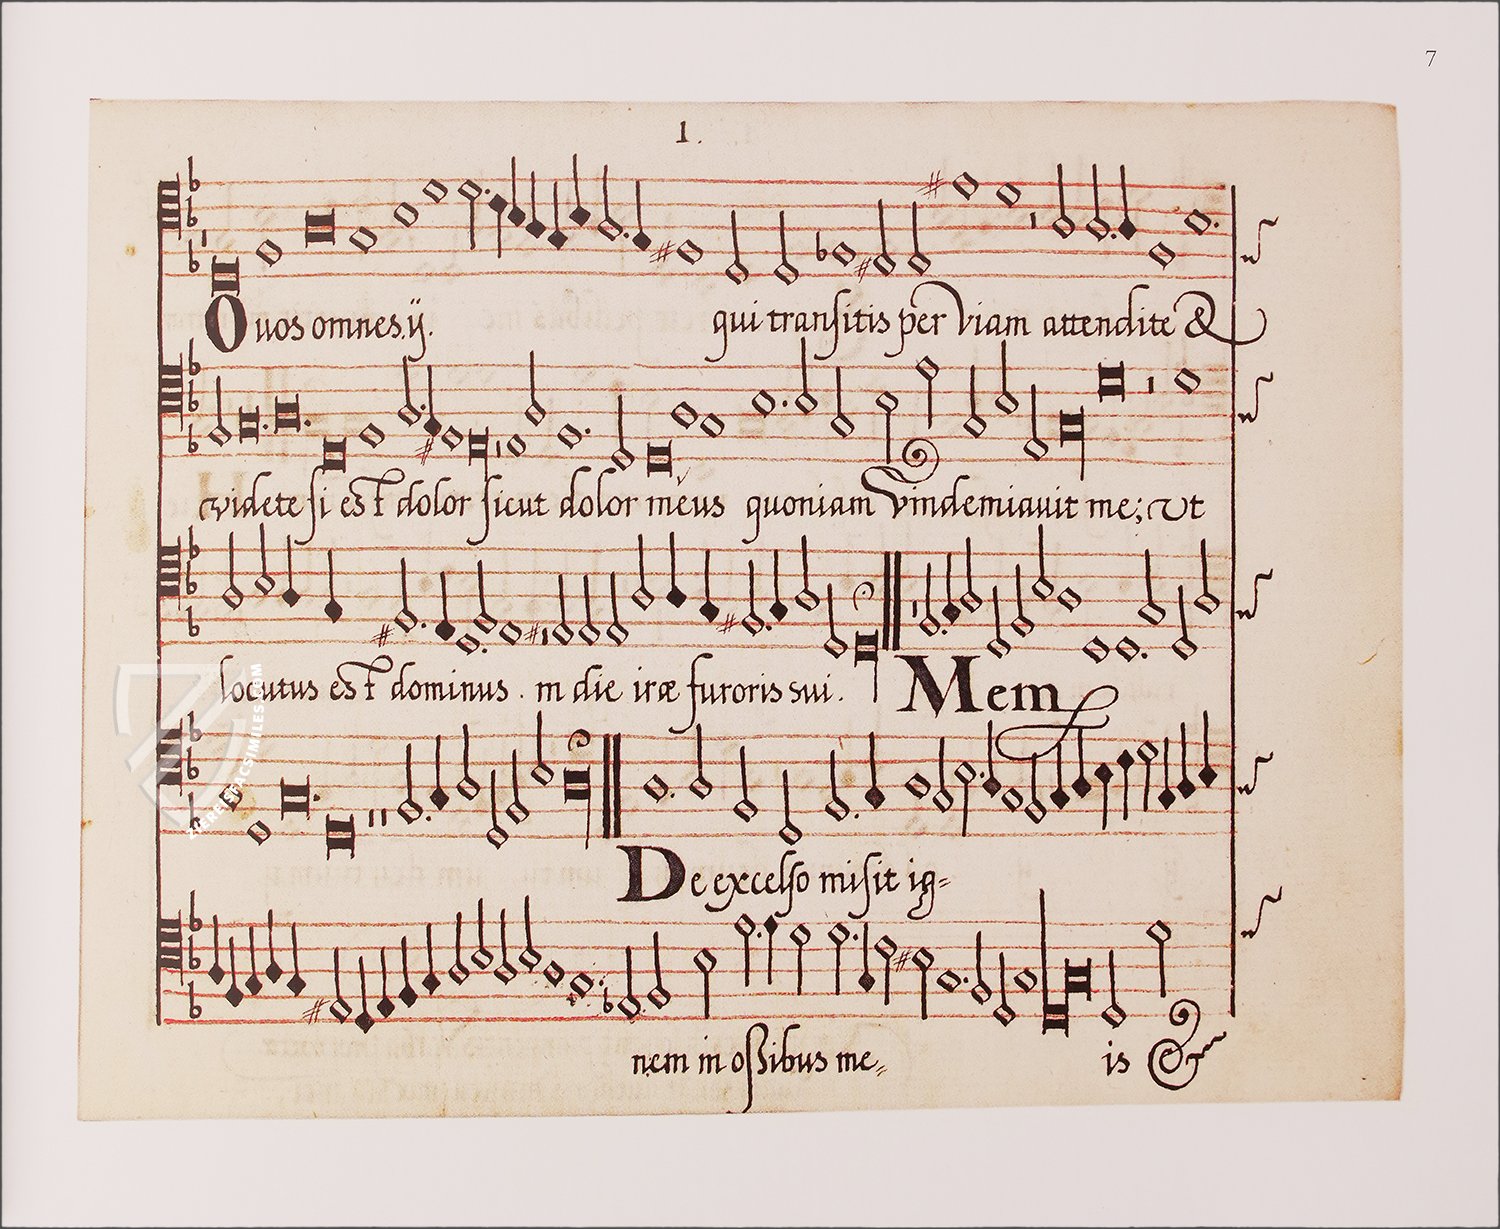 7
1.
O vos omnes.ij. qui transitis per viam attendite &
videte si est dolor sicut dolor meus quoniam vindemiavit me; vt
locutus est dominus . in die iræ furoris sui. Mem
ZIEREISFACSIMILES.COM
De excelso misit ig=
nem in ossibus me= is &